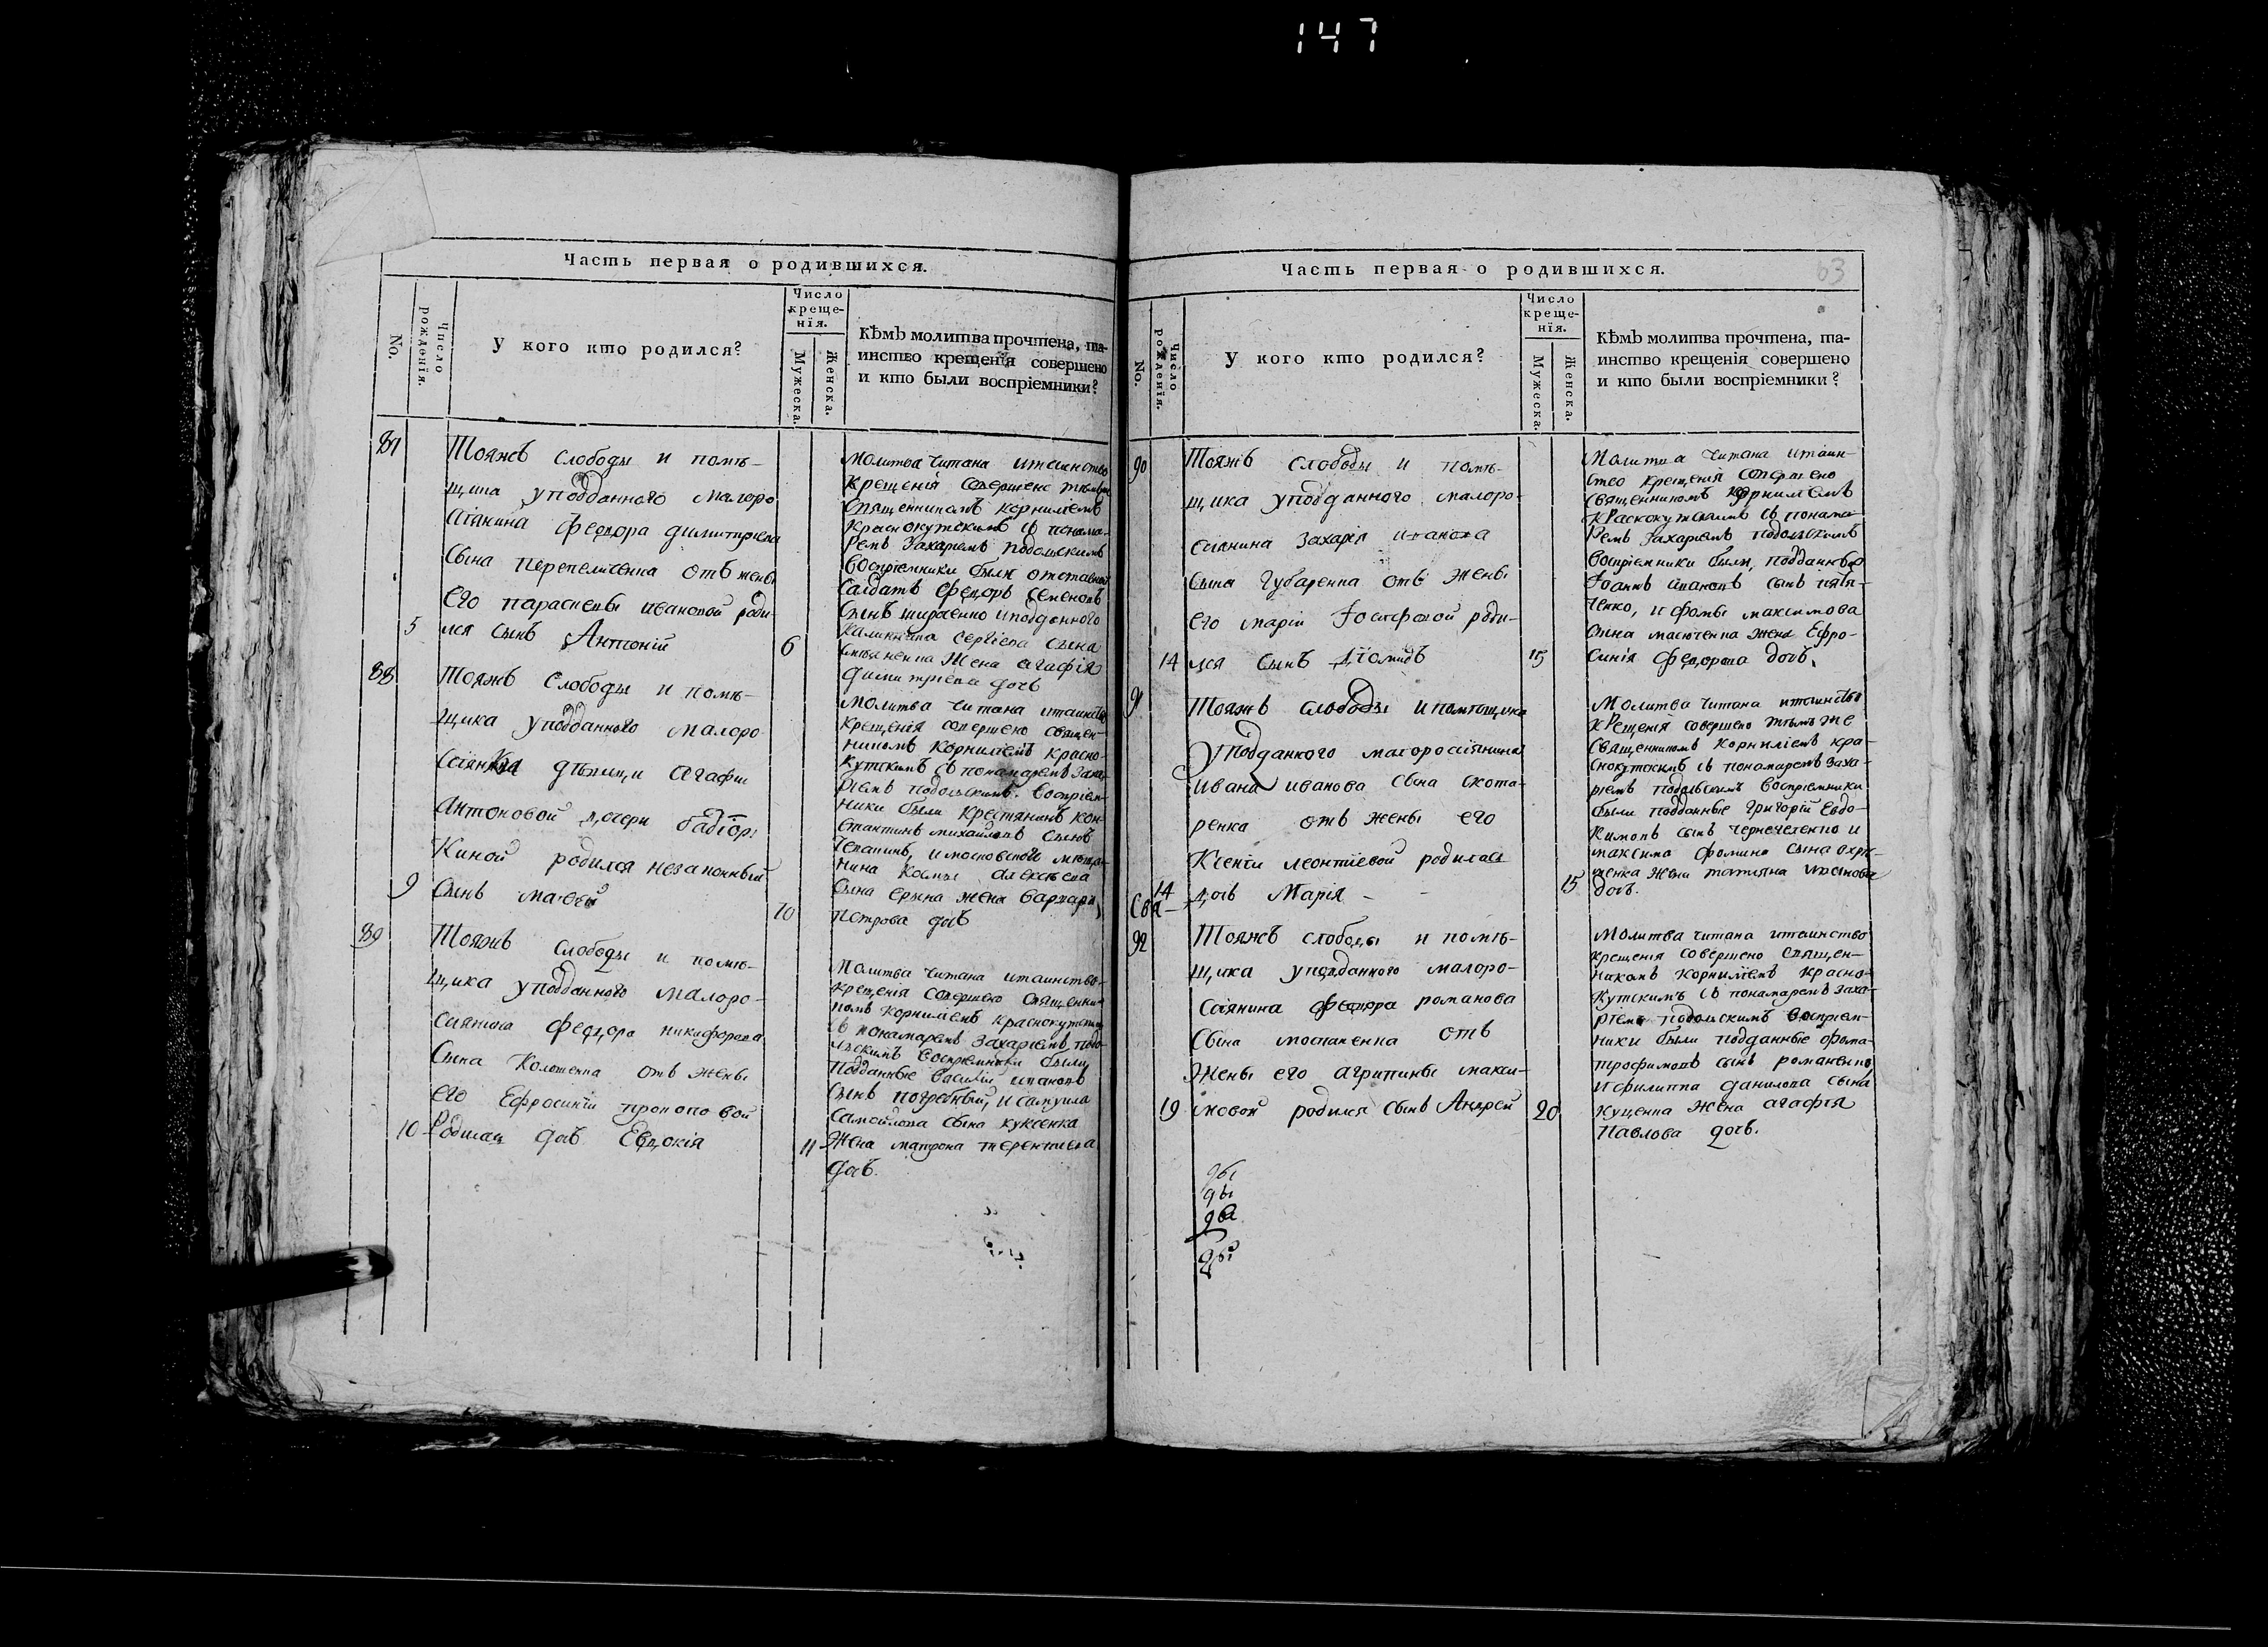 147
Часть первая о родившихся.
No.
Число рожденія.
У кого кто родился?
Число крещенія.
Мужеска.
Женска.
Кѣмъ молитва прочтена, та-
инство крещенія совершено
и кто были воспріемники?
87
Тояжъ слободы и помѣ-
щика уподданного малоро
сіянина Федора димитріева
сына перепеличенка отъ жены
его параскевы ивановой роди
5
лся сынъ Антоній
6
Молитва читана итаинство
крещенія совершено тѣмъже
священникомъ корниліемъ
краснокутскимъ съ понома-
ремъ Захаріемъ подольскимъ
воспріемники были отставной
салдатъ Федоръ семеновъ
сынъ иподданного
калинника сергіева сына
жена агафія
димитріева дочь
88
Тояжъ слободы и помѣ-
щика уподданного малоро
сіянки дѣвици агафіи
антоновой дочери
киной родился незаконный
9
сынъ
10
молитва читана итаинство
крещенія совершено священ-
никомъ корниліемъ красно-
кутскимъ съ понамаремъ заха-
ріемъ подольскимъ. воспріем-
ники были крестянинъ кон-
стантинъ михайловъ сынъ
чепанинъ, имосковской мѣща-
нина космы алексѣева
сына ерина жена варвара
петрова дочь
89
Тояжъ слободы и помѣ-
щика уподданного малоро-
сіянина федора никифорова
сына отъ жены
его Ефросиніи прокоповой
10
Родилась дочь Евдокія
11
Молитва читана итаинство
крещенія совершено священни
комъ корниліемъ краснокутскимъ
съ понамаремъ захаріемъ подо-
льскимъ воспріемники были
подданные василій ивановъ
сынъ погребный, исамуила
самойлова сына куксенка
жена матрона терентиева
дочь.
Часть первая о родившихся.
63
No.
Число рожденія.
У кого кто родился?
Число крещенія.
Мужеска.
Женска.
Кѣмъ молитва прочтена, та-
инство крещенія совершено
и кто были воспріемники?
90
Тояжъ слободы и помѣ-
щика уподданного малоро-
сіянина захарія иванова
сына губаренка отъ жены
его маріи Іосифовой роди-
14
лся сынъ Діомидъ
15
Молитва читана итаин-
ство крещенія совершено
священникомъ корниліемъ
краснокутскимъ съ понама
ремъ захаріемъ подольскимъ
воспріемники были, подданные
Іоаннъ ивановъ сынъ
ченко, и фомы максимова
сына масюченка жена Ефро-
синія федорова дочь.
91
Тояжъ слободы ипомѣщика
уподданного малоросіянина
ивана иванова сына скота-
ренка отъ жены его
Ксеніи леонтіевой родилась
14
дочь Марія -
15
Молитва читана итаинство
крещенія совершено тѣмъ же
священникомъ корниліемъ кра-
снокутскимъ съ понамаремъ заха-
ріемъ подольскимъ воспріемники
были подданные григорій Евдо-
кимовъ сынъ и
максима фомина сына охри-
менка жена татіяна иванова
дочь.
92
Тояжъ слободы и помѣ-
щика уподданного малоро-
сіянина федора романова
сына москаленка отъ
жены его агрипины макси-
19
мовой родился сынъ Андрей
20
Молитва читана итаинство
крещенія совершено священ-
никомъ корниліемъ красно-
кутскимъ съ понамаремъ заха-
ріемъ подольскимъ воспріем-
ники были подданные фома
трофимовъ сынъ романенко
ифилиппа данилова сына
куценка жена агафія
павлова дочь.